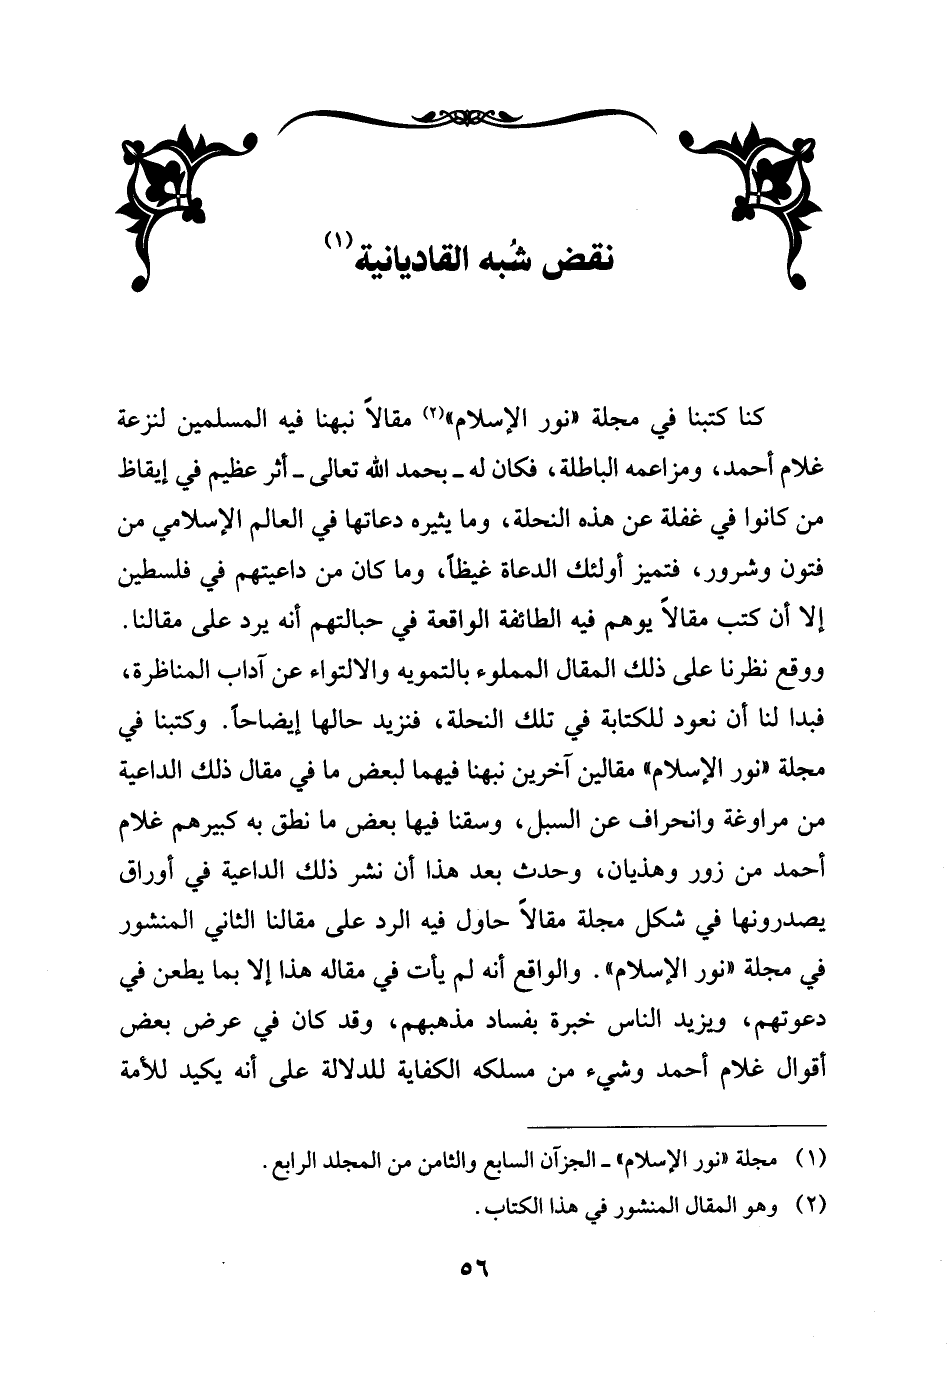 نقض شُبه القاديانية(١)
كنا كتبنا في مجلة «نور الإسلام»(٢) مقالاً نبهنا فيه المسلمين لنزعة
غلام أحمد، ومزاعمه الباطلة، فكان له ـ بحمد الله تعالى ـ أثر عظيم في إيقاظ
من كانوا في غفلة عن هذه النحلة، وما يثيره دعاتها في العالم الإسلامي من
فتون وشرور، فتميز أولئك الدعاة غيظاً، وما كان من داعيتهم في فلسطين
إلا أن كتب مقالاً يوهم فيه الطائفة الواقعة في حبالتهم أنه يرد على مقالنا.
ووقع نظرنا على ذلك المقال المملوء بالتمويه والالتواء عن آداب المناظرة،
فبدا لنا أن نعود للكتابة في تلك النحلة، فنزيد حالها إيضاحاً. وكتبنا في
مجلة «نور الإسلام» مقالين آخرين نبهنا فيهما لبعض ما في مقال ذلك الداعية
من مراوغة وانحراف عن السبل، وسقنا فيها بعض ما نطق به كبيرهم غلام
أحمد من زور وهذيان، وحدث بعد هذا أن نشر ذلك الداعية في أوراق
يصدرونها في شكل مجلة مقالاً حاول فيه الرد على مقالنا الثاني المنشور
في مجلة «نور الإسلام». والواقع أنه لم يأت في مقاله هذا إلا بما يطعن في
دعوتهم، ويزيد الناس خبرة بفساد مذهبهم، وقد كان في عرض بعض
أقوال غلام أحمد وشيء من مسلكه الكفاية للدلالة على أنه يكيد للأمة
(١) مجلة «نور الإسلام» ـ الجزآن السابع والثامن من المجلد الرابع.
(٢) وهو المقال المنشور في هذا الكتاب.
٥٦